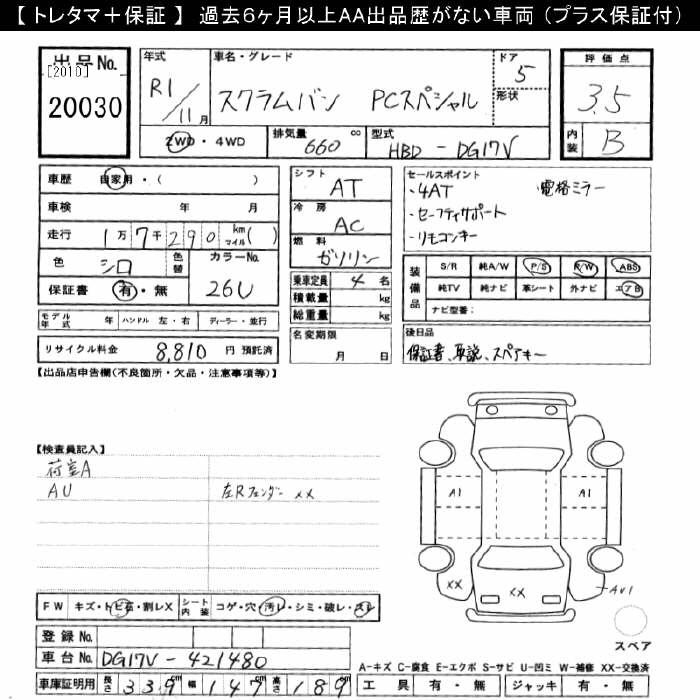 【 トレタマ＋保証 】 過去6ヶ月以上AA出品歴がない車両（プラス保証付）
出品No.
[2010]
20030
年式
R1/11月
車名・グレード
スクラムバン PCスペシャル
ドア
5
形状
2WD・4WD
排気量
660 cc
型式
HBD-DG17V
評価点
3.5
内装
B
車歴 自家用・( )
車検 年 月
走行 1万7千290 km マイル( )
色 シロ 色替 カラーNo. 26U
保証書 有・無
モデル年式 年 ハンドル 左・右 ディーラー・並行
リサイクル料金 8,810 円 預託済
シフト
AT
冷房
AC
燃料
ガソリン
乗車定員 4 名
積載量 kg
総重量 kg
名変期限
月 日
セールスポイント
・4AT ・電格ミラー
・セーフティサポート
・リモコンキー
装備品
S/R 純A/W P/S R/W ABS
純TV 純ナビ 革シート 外ナビ エアB
ナビ型番:
後日品
保証書、取説、スペアキー
【出品店申告欄(不良箇所・欠品・注意事項等)】
【検査員記入】
荷室A
AU 左Rフェンダー XX
A1 A1
XX XX AU1
スペア
FW キズ・トビ石・割レX シート内装 コゲ・穴・汚レ・シミ・破レ・スレ
登録No.
車台No. DG17V-421480
車庫証明用 長さ 339cm 幅 147cm 高さ 189cm
A-キズ C-腐食 E-エクボ S-サビ U-凹ミ W-補修 XX-交換済
工具 有・無 ジャッキ 有・無